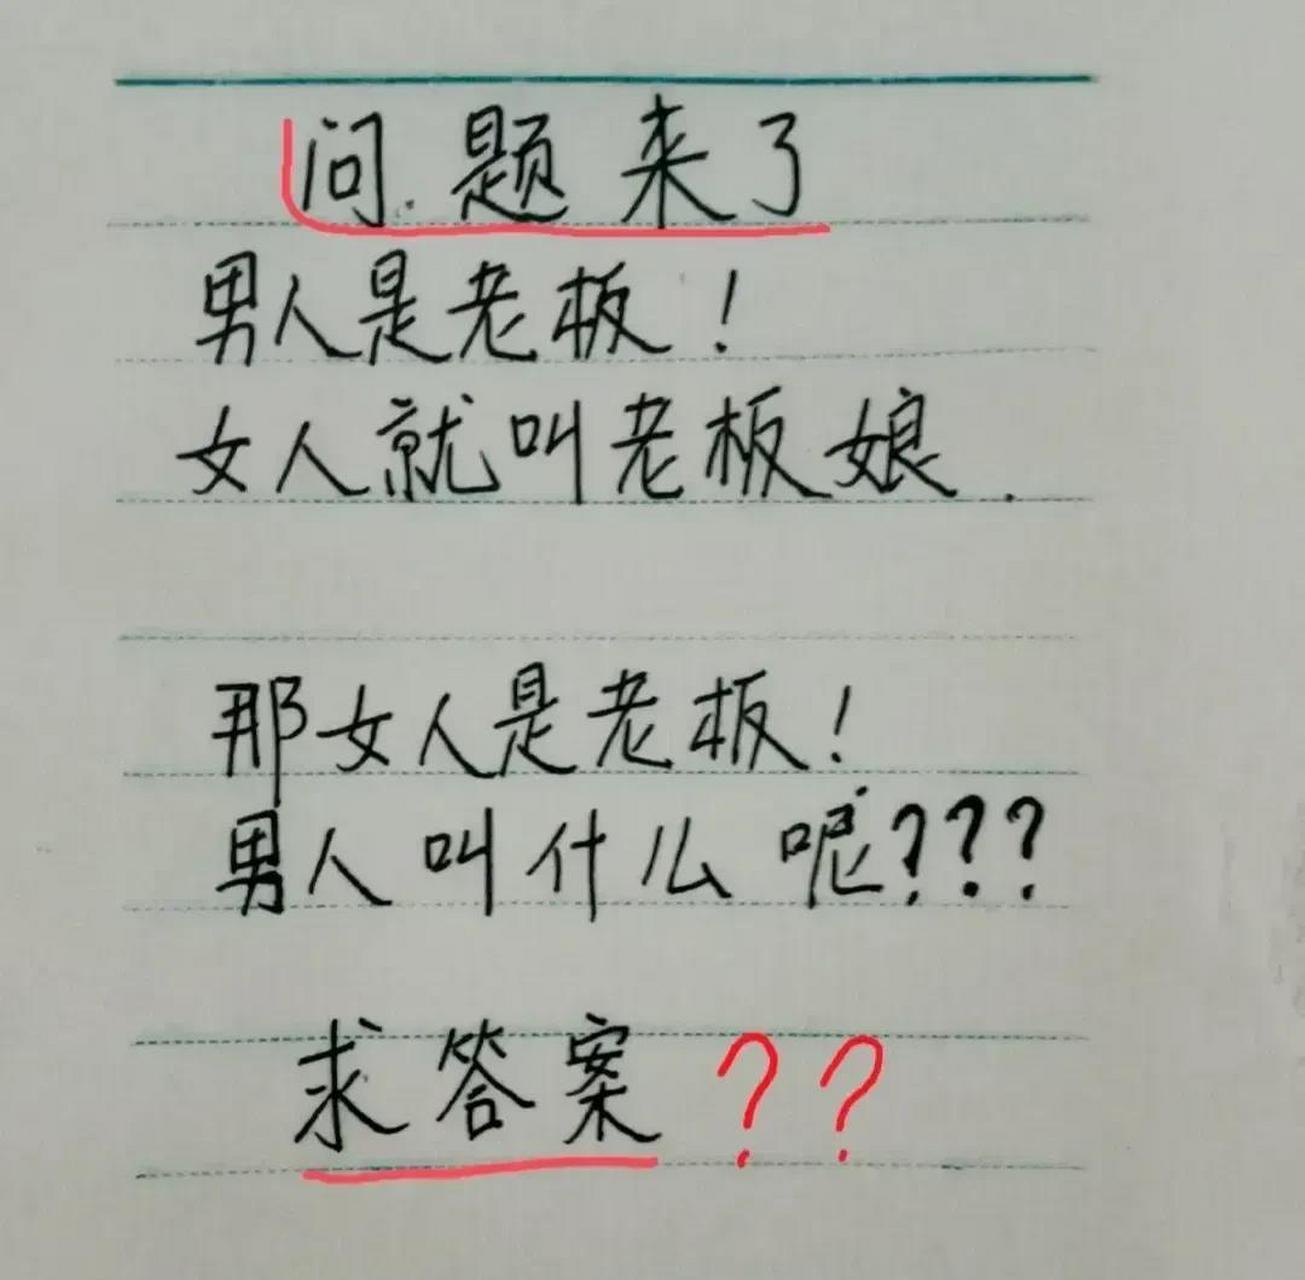 问题来了
男人是老板！
女人就叫老板娘.
那女人是老板！
男人叫什么呢？？？
求答案？？